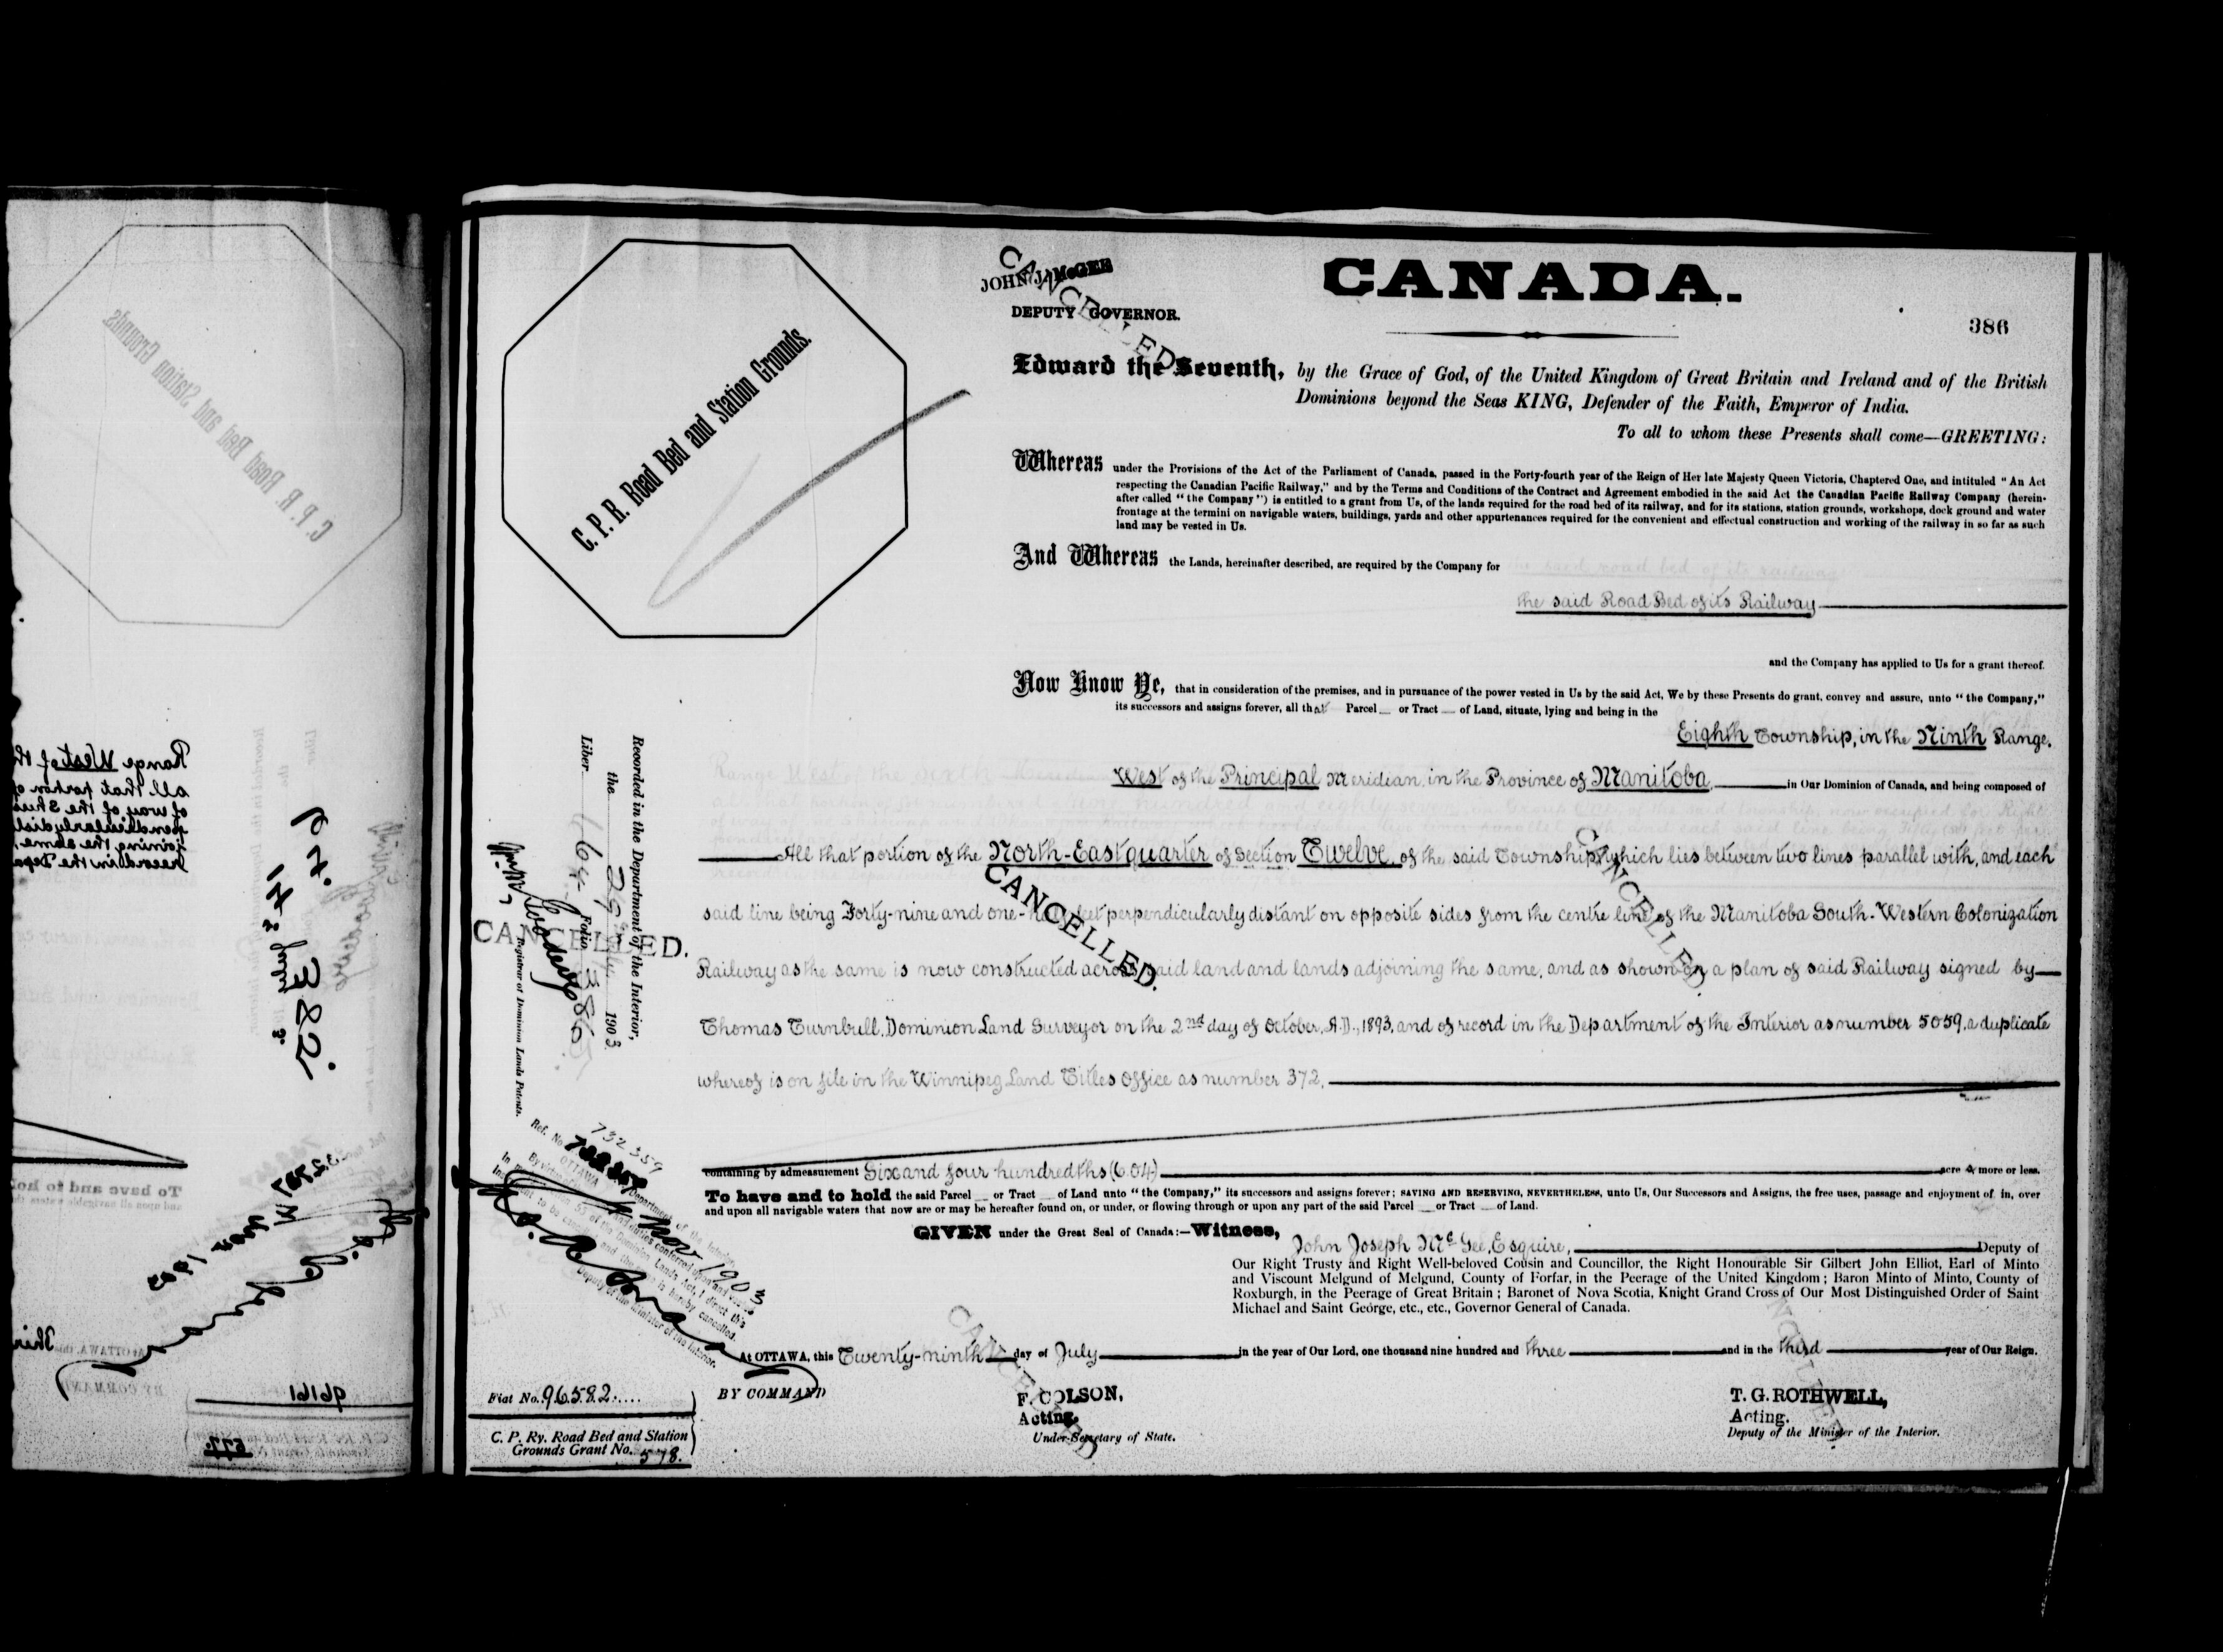 CANADA.
386
JOHN J. McGEE
DEPUTY GOVERNOR.
CANCELLED
C. P. R. Road Bed and Station Grounds.
Edward the Seventh, by the Grace of God, of the United Kingdom of Great Britain and Ireland and of the British
Dominions beyond the Seas KING, Defender of the Faith, Emperor of India.
To all to whom these Presents shall come—GREETING:
Whereas under the Provisions of the Act of the Parliament of Canada, passed in the Forty-fourth year of the Reign of Her late Majesty Queen Victoria, Chaptered One, and intituled "An Act
respecting the Canadian Pacific Railway," and by the Terms and Conditions of the Contract and Agreement embodied in the said Act the Canadian Pacific Railway Company (herein-
after called "the Company") is entitled to a grant from Us, of the lands required for the road bed of its railway, and for its stations, station grounds, workshops, dock ground and water
frontage at the termini on navigable waters, buildings, yards and other appurtenances required for the convenient and effectual construction and working of the railway in so far as such
land may be vested in Us.
And Whereas the Lands, hereinafter described, are required by the Company for
the said Road Bed of its Railway
and the Company has applied to Us for a grant thereof.
Now Know Ye, that in consideration of the premises, and in pursuance of the power vested in Us by the said Act, We by these Presents do grant, convey and assure, unto "the Company,"
its successors and assigns forever, all that Parcel or Tract of Land, situate, lying and being in the
Eighth Township, in the Ninth Range,
West of the Principal Meridian, in the Province of Manitoba, in Our Dominion of Canada, and being composed of
All that portion of the North-East quarter of Section Twelve, of the said Township, which lies between two lines parallel with, and each
said line being Forty-nine and one-half feet perpendicularly distant on opposite sides from the centre line of the Manitoba South-Western Colonization
Railway as the same is now constructed across said land and lands adjoining the same, and as shown on a plan of said Railway signed by
Thomas Turnbull, Dominion Land Surveyor on the 2nd day of October, A.D., 1893, and of record in the Department of the Interior as number 5059, a duplicate
whereof is on file in the Winnipeg Land Titles Office as number 372,
CANCELLED.
CANCELLED.
CANCELLED.
containing by admeasurement Six and four hundredths (6.04) acre s more or less.
To have and to hold the said Parcel or Tract of Land unto "the Company," its successors and assigns forever; SAVING AND RESERVING, NEVERTHELESS, unto Us, Our Successors and Assigns, the free uses, passage and enjoyment of, in, over
and upon all navigable waters that now are or may be hereafter found on, or under, or flowing through or upon any part of the said Parcel or Tract of Land.
GIVEN under the Great Seal of Canada:—Witness,
John Joseph McGee, Esquire, Deputy of
Our Right Trusty and Right Well-beloved Cousin and Councillor, the Right Honourable Sir Gilbert John Elliot, Earl of Minto
and Viscount Melgund of Melgund, County of Forfar, in the Peerage of the United Kingdom; Baron Minto of Minto, County of
Roxburgh, in the Peerage of Great Britain; Baronet of Nova Scotia, Knight Grand Cross of Our Most Distinguished Order of Saint
Michael and Saint George, etc., etc., Governor General of Canada.
At OTTAWA, this Twenty-ninth day of July in the year of Our Lord, one thousand nine hundred and three and in the third year of Our Reign.
BY COMMAND
F. COLSON,
Acting.
Under-Secretary of State.
T. G. ROTHWELL,
Acting.
Deputy of the Minister of the Interior.
CANCELLED
CANCELLED
Recorded in the Department of the Interior,
the 29 July 1903
Liber 164 Folio 386
Registrar of Dominion Lands Patents.
732359
Ref. No. 732359
Department of the Interior,
OTTAWA 4 Nov 1903
By virtue of and duties conferred upon and vested
In 53 of the Dominion Lands Act, I direct this
to be and the is hereby cancelled.
Deputy of the Minister of the Interior.
Fiat No. 96582
C. P. Ry. Road Bed and Station
Grounds Grant No. 578.
Range West of th
all that portion of
of way of the
joining the same,
record in the Depa
To have and to hol
and upon all navigable waters
C. P. R. Road Bed and Station Grounds
17 July 3
382
At OTTAWA, this Thir
BY COMMAND
96161
577.